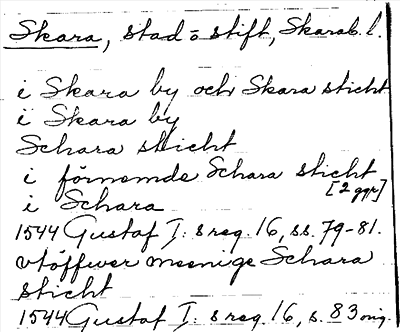 Skara, stad o stift, Skarab. l.
i Skara by och Skara sticht
i Skara by
Schara sticht
i förnemde Schara sticht
[2 ggr]
i Schara
1544 Gustaf I: s reg. 16, ss. 79-81.
vtöffwer meenige Schara
sticht
1544 Gustaf I: s reg. 16, s. 83 orig.